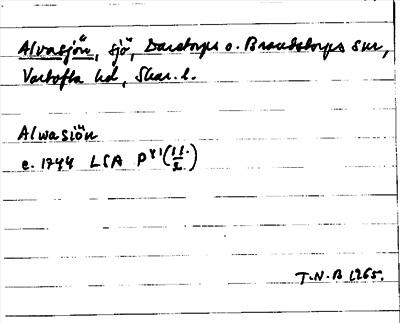 Alvasjön, sjö, Daretorps o. Brandstorps snr,
Vartofta hd, Skar. l.
Alwasiön
c. 1744 LSA P 41 (11/2)
T.N.B 1265.